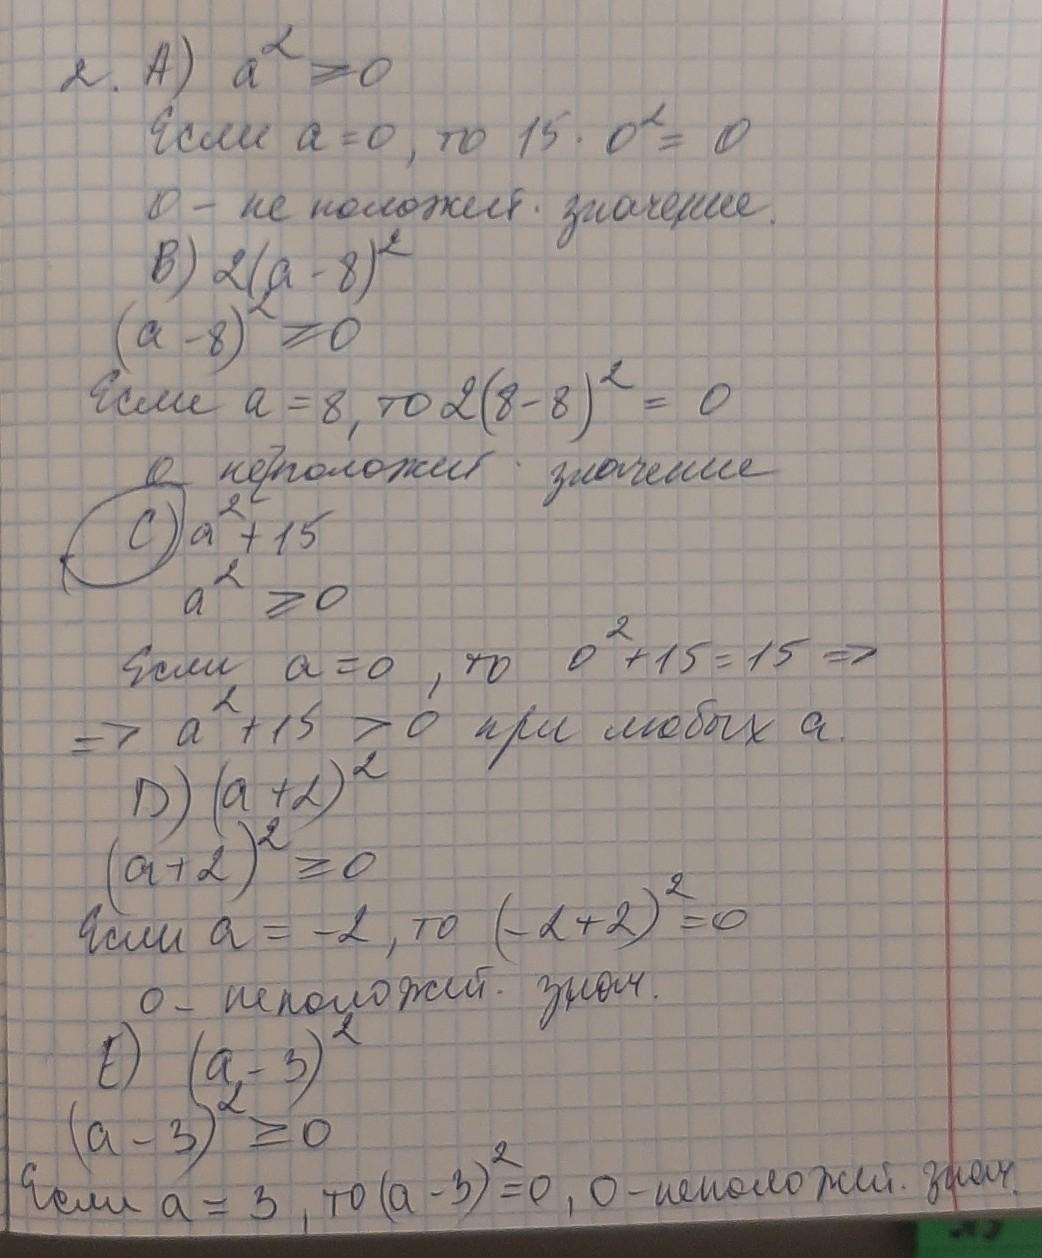 2. A) a² ≥ 0
Если a = 0, то 15 · 0² = 0
0 – не положит. значение.
B) 2(a - 8)²
(a - 8)² ≥ 0
Если a = 8, то 2(8 - 8)² = 0
0 не положит. значение
C) a² + 15
a² ≥ 0
Если a = 0, то 0² + 15 = 15 =>
=> a² + 15 > 0 при любых a.
D) (a + 2)²
(a + 2)² ≥ 0
Если a = -2, то (-2 + 2)² = 0
0 – неположит. знач.
E) (a - 3)²
(a - 3)² ≥ 0
Если a = 3, то (a - 3)² = 0, 0 – неположит. знач.